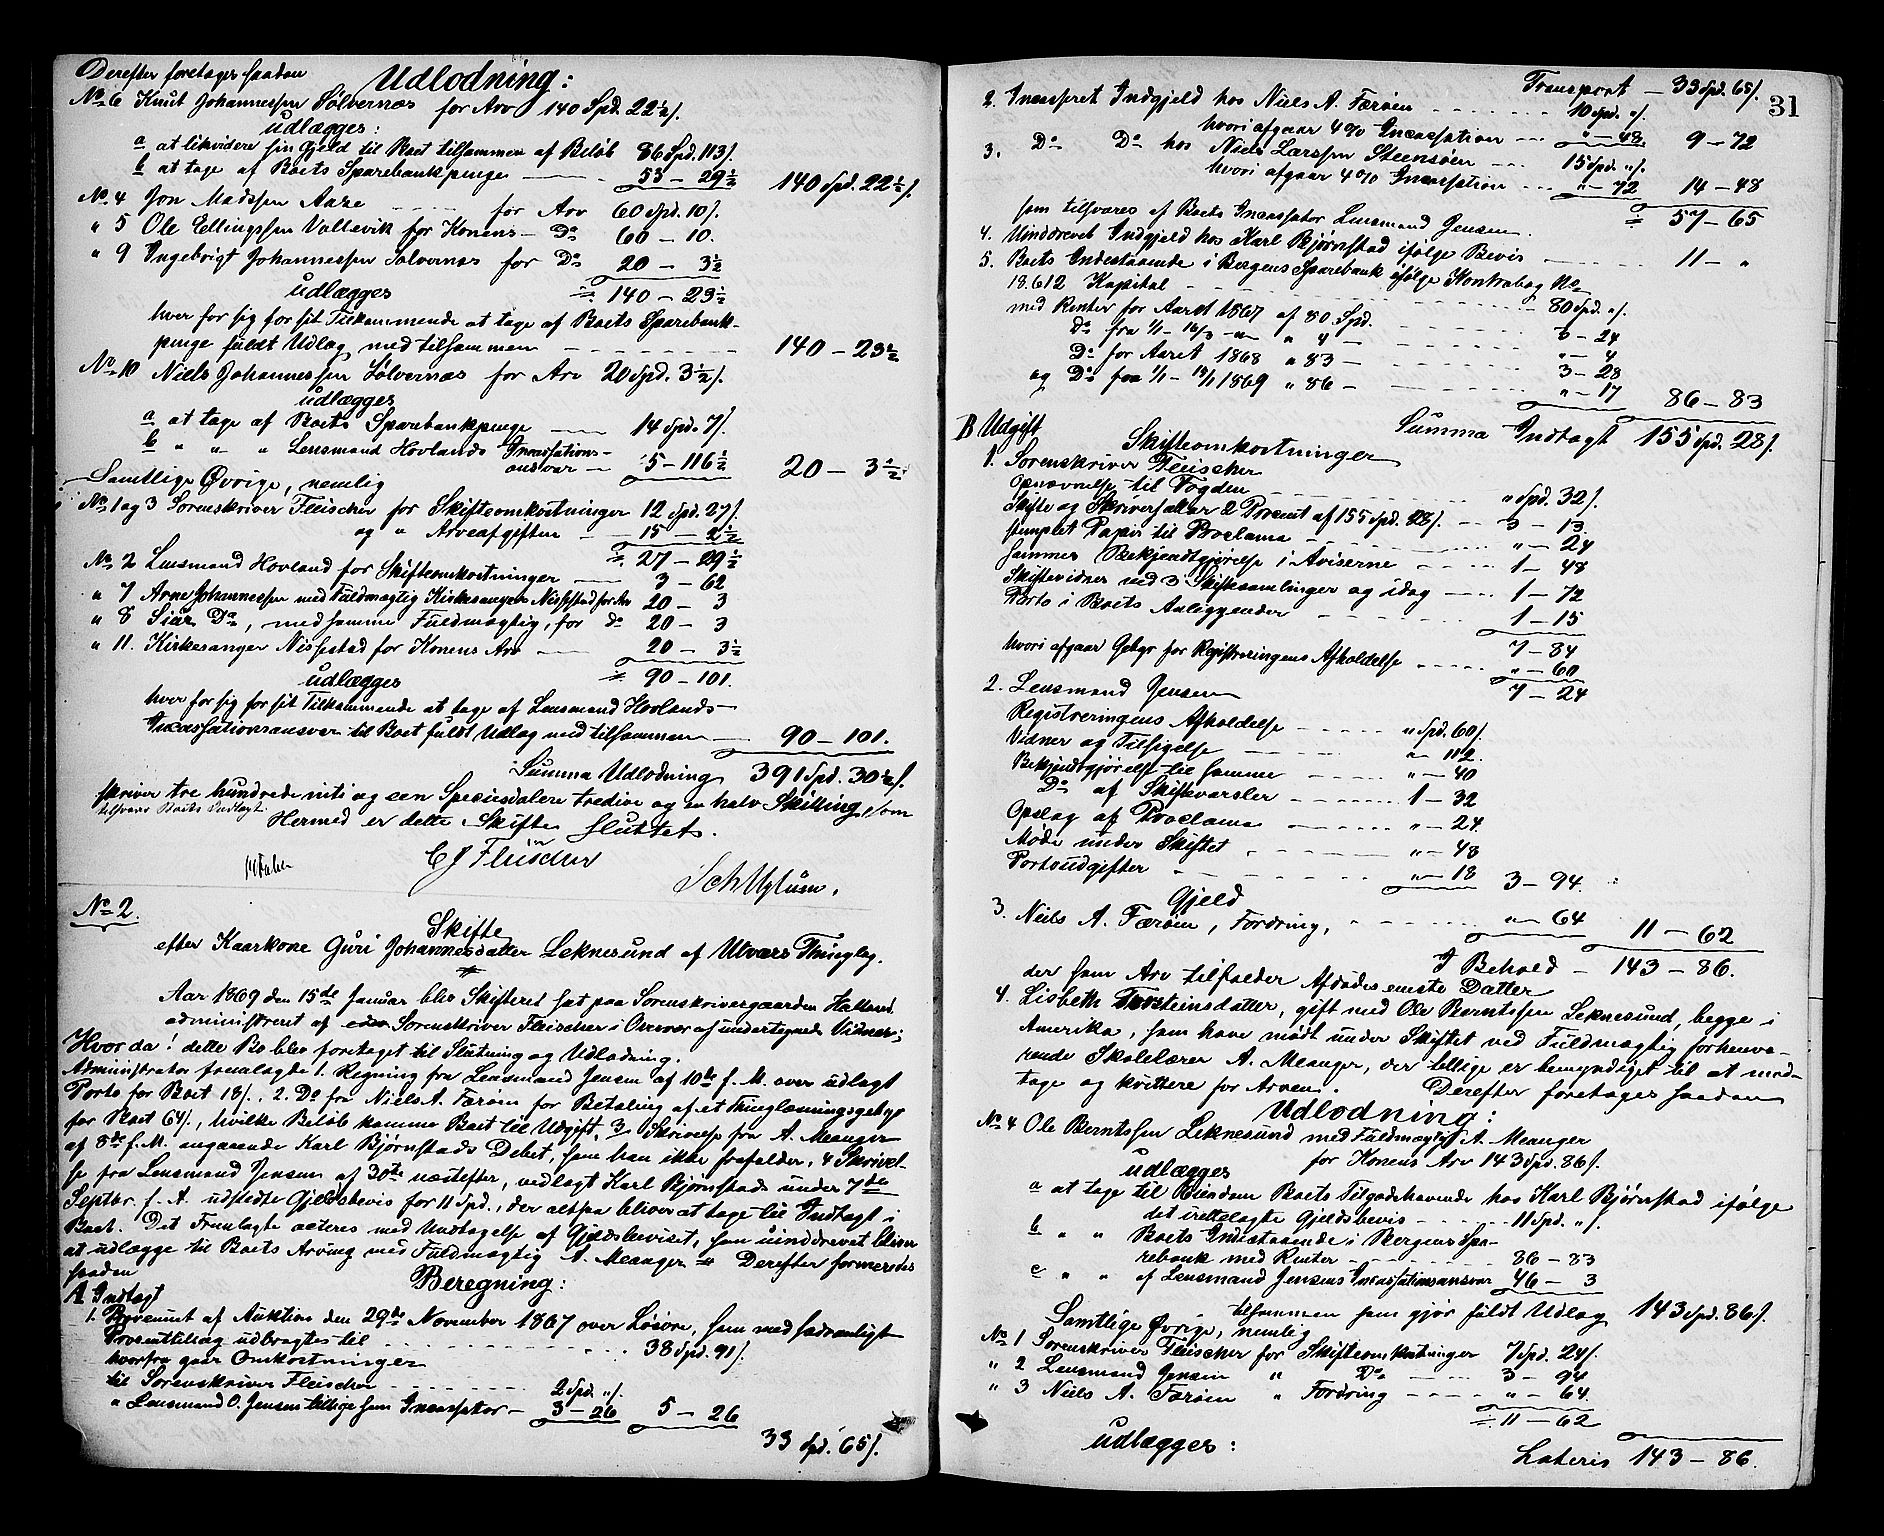 Derefter foretages saadan
Udlodning:
No 6 Knut Johannessen Sølvernæs for Arv 140 Spd. 22½ /.
udlægges:
a at likvidere sin Gjeld til Boet tilsammen af Beløb 86 Spd. 113 /.
b at tage af Boets Sparebankpenge 53 – 29½ 140 Spd. 22½ /.
No 4 Jon Madssen Aare for Arv 60 Spd. 10 /.
" 5 Ole Ellingssen Vallevik for Konens Do 60 – 10.
" 9 Ingebrigt Johannessen Sølvernæs for Do 20 – 3½
udlægges 140 – 23½
hver for sig for sit Tilkommende at tage af Boets Sparebank-
penge fuldt Udlæg med tilsammen 140 – 23½
No 10 Niels Johannessen Sølvernæs for Arv 20 Spd. 3½ /.
udlægges
a at tage af Boets Sparebankpenge 14 Spd. 7 /.
b " " " Lensmand Hovlands Incassations-
ansvar 5 – 116½ 20 – 3½
Samtlige Øvrige, nemlig
No 1 og 3 Sorenskriver Fleischer for Skifteomkostninger 12 Spd. 27 /.
og " Arveafgiften 15 – 2½
27 – 29½
No 2 Lensmand Hovland for Skifteomkostninger 3 – 62
" 7 Arne Johannessen med Fuldmægtig Kirkesanger Nissestad for Arv 20 – 3
" 8 Siur Do, med samme Fuldmægtig, for do 20 – 3
" 11. Kirkesanger Nissestad for Konens Arv 20 – 3½
udlægges 90 – 101.
hver for sig for sit Tilkommende at tage af Lensmand Hovlands
Incassationsansvar til Boet fuldt Udlæg med tilsammen 90 – 101.
Summa Udlodning 391 Spd. 30½ /.
skriver tre hundrede niti og een Speciedaler tredive og en halv Skilling, som
tilsvarer Boets Indtægt.
Hermed er dette Skifte sluttet.
CJ Fleischer
No 2.
Skifte
efter Kaarkone Guri Johannesdatter Leknesund af Utvær Thinglag.
Aar 1869 den 15de Januar blev Skifteret sat paa Sorenskrivergaarden
administreret af Sorenskriver Fleischer i Overvær af undertegnede Vidner;
Hvor da! dette Bo blev foretaget til Slutning og Udlodning.
Administrator fremlagte 1. Regning fra Lensmand Jensen af 10de f. M. over udlagt
Porto for Boet 18 /., 2. Do fra Niels A. Færøen for Betaling af et Thinglæsningsgebyr
for Boet 64 /., hvilke Beløb komme Boet til Udgift, 3. Skrivelse fra A. Meanger
af 8de f. M. angaaende Karl Bjørnstads Debet, som han ikke frafalder, 4 Skrivel-
se fra Lensmand Jensen af 30te næstefter, vedlagt Karl Bjørnstads under 7de
Septbr. f. A. udstedte Gjeldsbevis for 11 Spd., der altsaa bliver at tage til Indtægt i
Boet. Det Fremlagte acteres med Undtagelse af Gjeldsbeviset, som uinddrevet bliver
at udlægge til Boets Arving med Fuldmægtig A. Meanger. Derefter formeredes
saadan
Beregning:
A Indtægt
1. Provenuet af Auktion den 29de November 1867 over Løsøre, som med sædvanligt
Procenttillæg udbragtes til 38 Spd. 91 /.
hvorfra gaar Omkostninger
til Sorenskriver Fleischer 2 Spd. " /.
" Lensmand O. Jensen tillige som Incassator 3 – 26 5 – 26
33 Spd. 65 /.
31
Transport – 33 Spd. 65 /.
2. Incasseret Indgjeld hos Niels A. Færøen 10 Spd. " /.
hvori afgaar 4% Incassation " – 48 9 – 72
3. Do Do hos Niels Larssen Steensøen 15 Spd. " /.
hvori afgaar 4% Incassation " – 72 14 – 48
som tilsvares af Boets Incassator Lensmand Jensen. 57 – 65
4. Uinddrevet Indgjeld hos Karl Bjørnstad ifølge Bevis 11 – "
5. Boets Indestaaende i Bergens Sparebank ifølge Kontrabog No
18.612 Kapital 80 Spd. " /.
med Renter for Aaret 1867 af 80 Spd. 3 – 24
Do fra 1/1 – 16/3 " " 4 – " – 4
Do for Aaret 1868 " 83 – 3 – 28
og Do fra 1/1 – 15/1 1869 " 86 – " – 17 86 – 83
Summa Indtægt 155 Spd. 28 /.
B Udgift
Skifteomkostninger
1. Sorenskriver Fleischer
Opnævnelse til Fogden " Spd. 32 /.
Skifte og Skriversallær 2 Procent af 155 Spd. 28 /. 3 – 13
stemplet Papir til Proclama " – 24
sammes Bekjendtgjørelse i Aviserne 1 – 48
Skiftevidner ved 3 Skiftesamlinger og idag 1 – 72
Porto i Boets Anliggender 1 – 15
7 – 84
hvori afgaar Gebyr for Registreringens Afholdelse " – 60
7 – 24
2. Lensmand Jensen
Registreringens Afholdelse " Spd. 60 /.
Vidner og Tilsigelse " – 112.
Bekjendtgjørelse til samme " – 40
Do af Skiftevarsler 1 – 32
Opslag af Proclama " – 24
Møde under Skiftet " – 48
Portoudgifter " – 18 3 – 94.
Gjeld
3. Niels A. Færøen, Fordring, " – 64 11 – 62
I Behold – 143 – 86.
der som Arv tilfalder Afdødes eneste Datter
4. Lisbeth Torsteinsdatter, gift med Ole Berntssen Leknesund, begge i
Amerika, som have mødt under Skiftet ved Fuldmægtig forhenvæ-
rende Skolelærer A. Meanger, der tillige er bemyndiget til at mod-
tage og kvittere for Arven. Derefter foretages saadan
Udlodning:
No 4 Ole Berntssen Leknesund med Fuldmægtig A. Meanger
for Konens Arv 143 Spd. 86 /.
udlægges
a at tage til Eiendom Boets Tilgodehavende hos Karl Bjørnstad ifølge
det irettelagte Gjeldsbevis 11 Spd. " /.
b " " Boets Indestaaende i Bergens Spa-
rebank med Renter 86 – 83
c " " af Lensmand Jensens Incassationsansvar 46 – 3
tilsammen som gjør fuldt Udlæg 143 Spd. 86 /.
Samtlige Øvrige, nemlig
No 1 Sorenskriver Fleischer for Skifteomkostninger 7 Spd. 24 /.
" 2 Lensmand Jensen " Do 3 – 94
" 3 Niels A. Færøen " Fordring " – 64
11 – 62
udlægges:
Lateris 143 – 86.